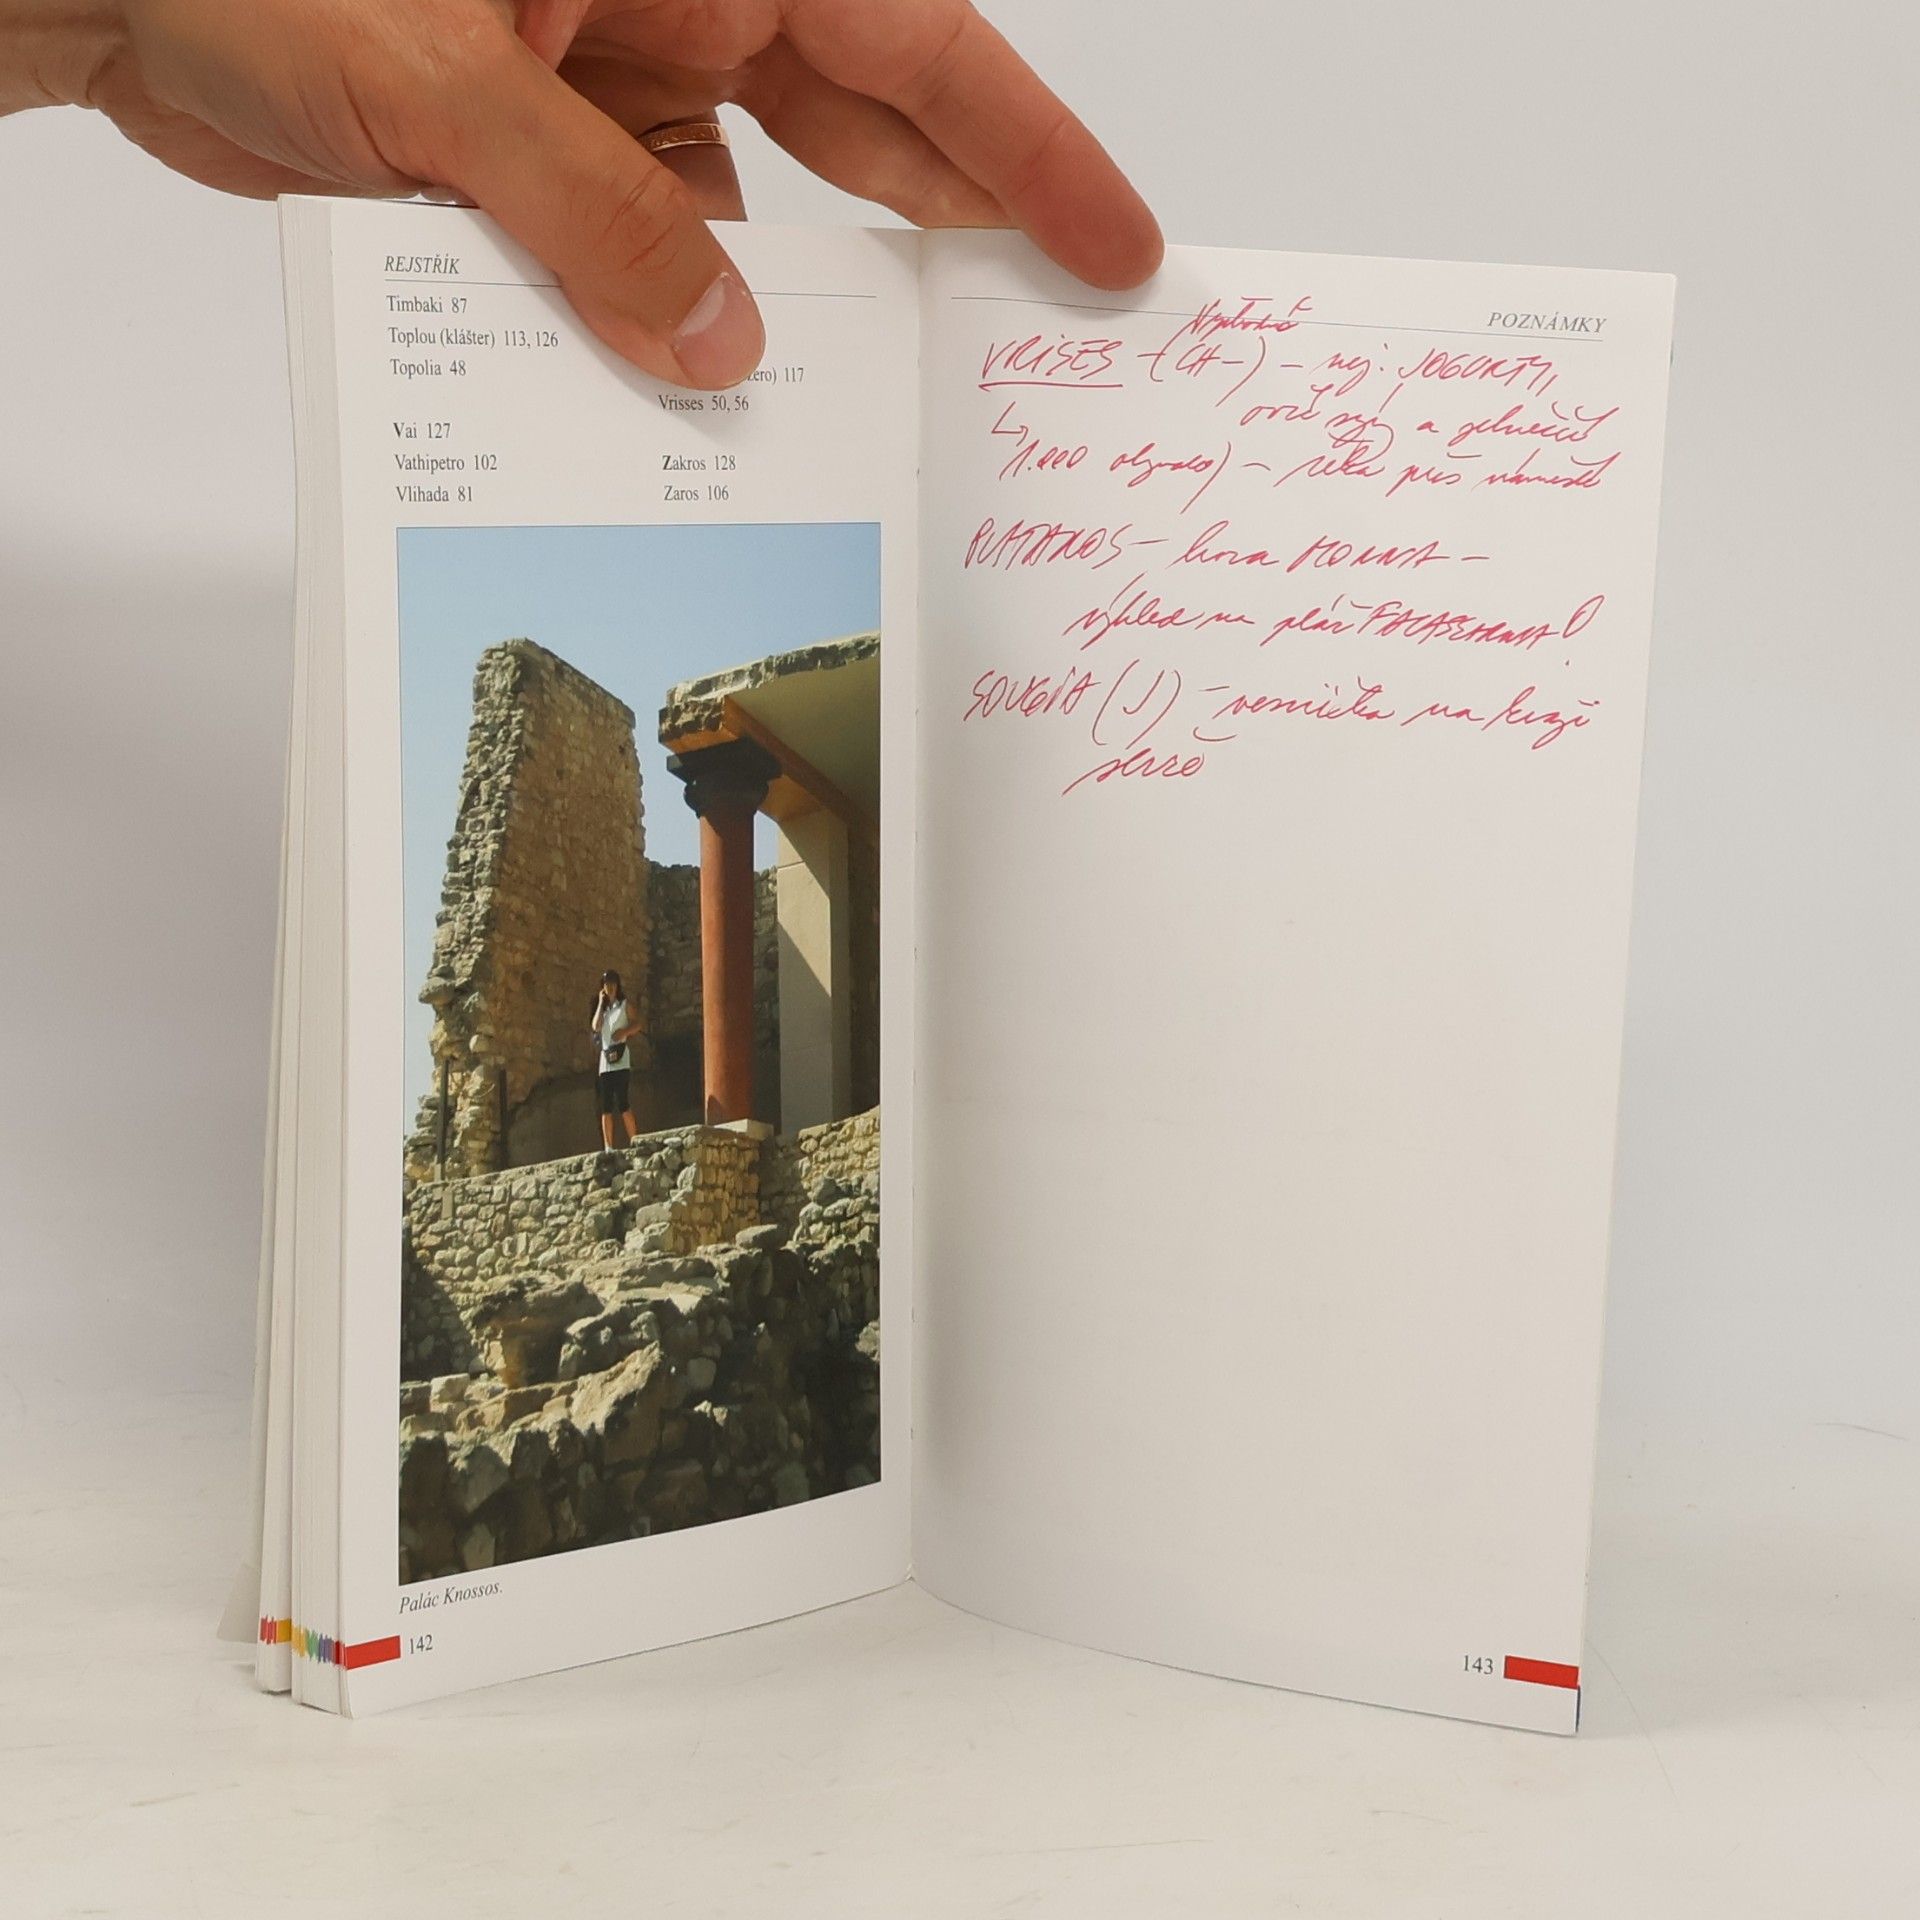 REJSTŘÍK
Timbaki 87
Toplou (klášter) 113, 126
Topolia 48
Vai 127
Vathipetro 102
Vlihada 81
zero) 117
Vrisses 50, 56
Zakros 128
Zaros 106
Palác Knossos.
142
POZNÁMKY
VRISES – (CH–) – nej. JOGURTY,
ovčí a
1.000 obyvatel) – řeka přes náměstí
PLATANOS – hora –
výhled na pláž FALASSARNA!
SOUGIA (J) – vesnička na kraji
143